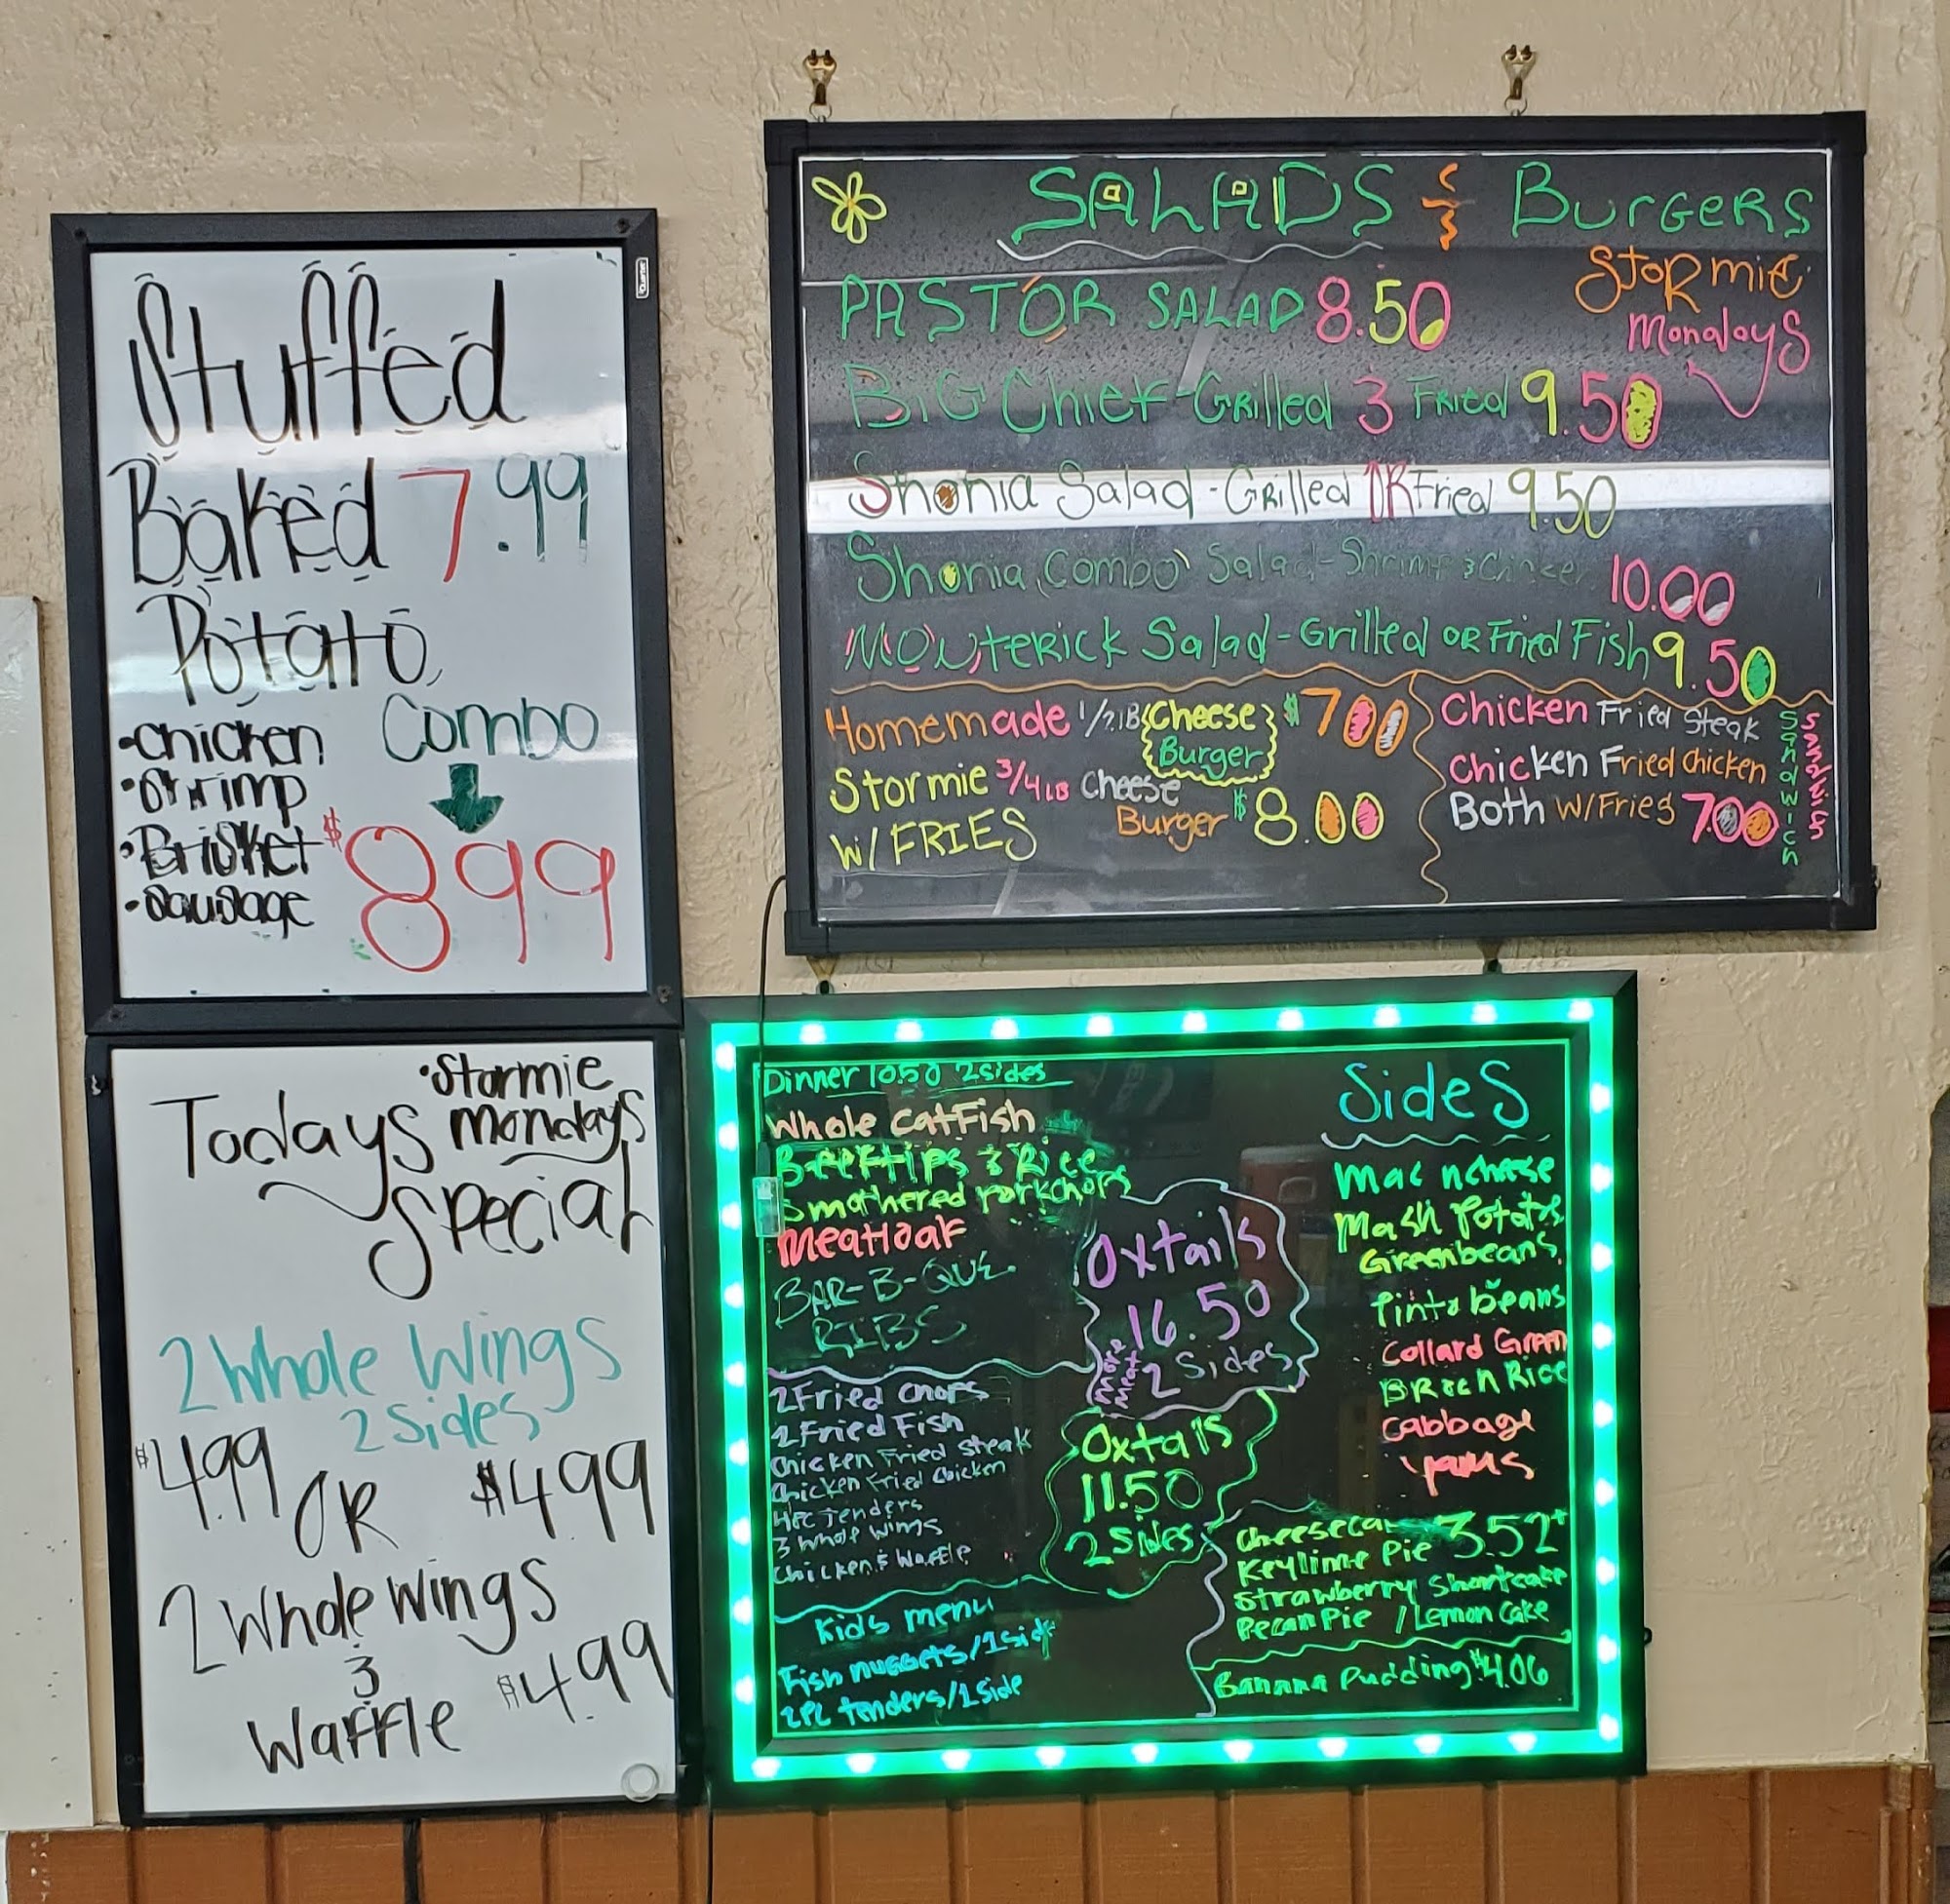 Stuffed
Baked 7.99
Potato
Combo
•Chicken
•Shrimp
•Brisket
•Sausage
$8 99
Quartet
•Stormie
Mondays
Todays
Special
2 Whole Wings
2 Sides
$4.99 OR $4.99
2 Whole Wings
&
Waffle $4.99
SALADS & BurGeRS
StoRmie
Mondays
PASTOR SALAD 8.50
BiG Chief-Grilled & Fried 9.50
Shonia Salad - Grilled OR Fried 9.50
Shonia Combo Salad - Shrimp &
10.00
Salad - Grilled OR Fried Fish 9.50
Homemade 1/2 lB Cheese Burger $7 00
Stormie 3/4 LB Cheese Burger $8.00
W/ FRIES
Chicken Fried Steak
Chicken Fried Chicken
Both W/Fries 7.00
Sandwich
Sandwich
Dinner 10.50 2 sides
Whole CatFish
Beeftips & Rice
Smothered Porkchops
Meatloaf
BAR-B-QUE
RIBS
Oxtails
16.50
2 Sides
more
meat
Oxtails
11.50
2 Sides
2 Fried Chops
2 Fried Fish
Chicken Fried Steak
Chicken Fried Chicken
4pc Tenders
3 Whole Wings
Chicken & Waffle
Kids menu
Fish nuggets/1 side
2pc tenders/1 side
Sides
Mac n cheese
Mash Potatos
Greenbeans
Pinto beans
Collard Green
Rice
Cabbage
yams
3.52+
Keylime Pie
Strawberry Shortcake
Pecan Pie / Lemon Cake
Banana Pudding $4.06